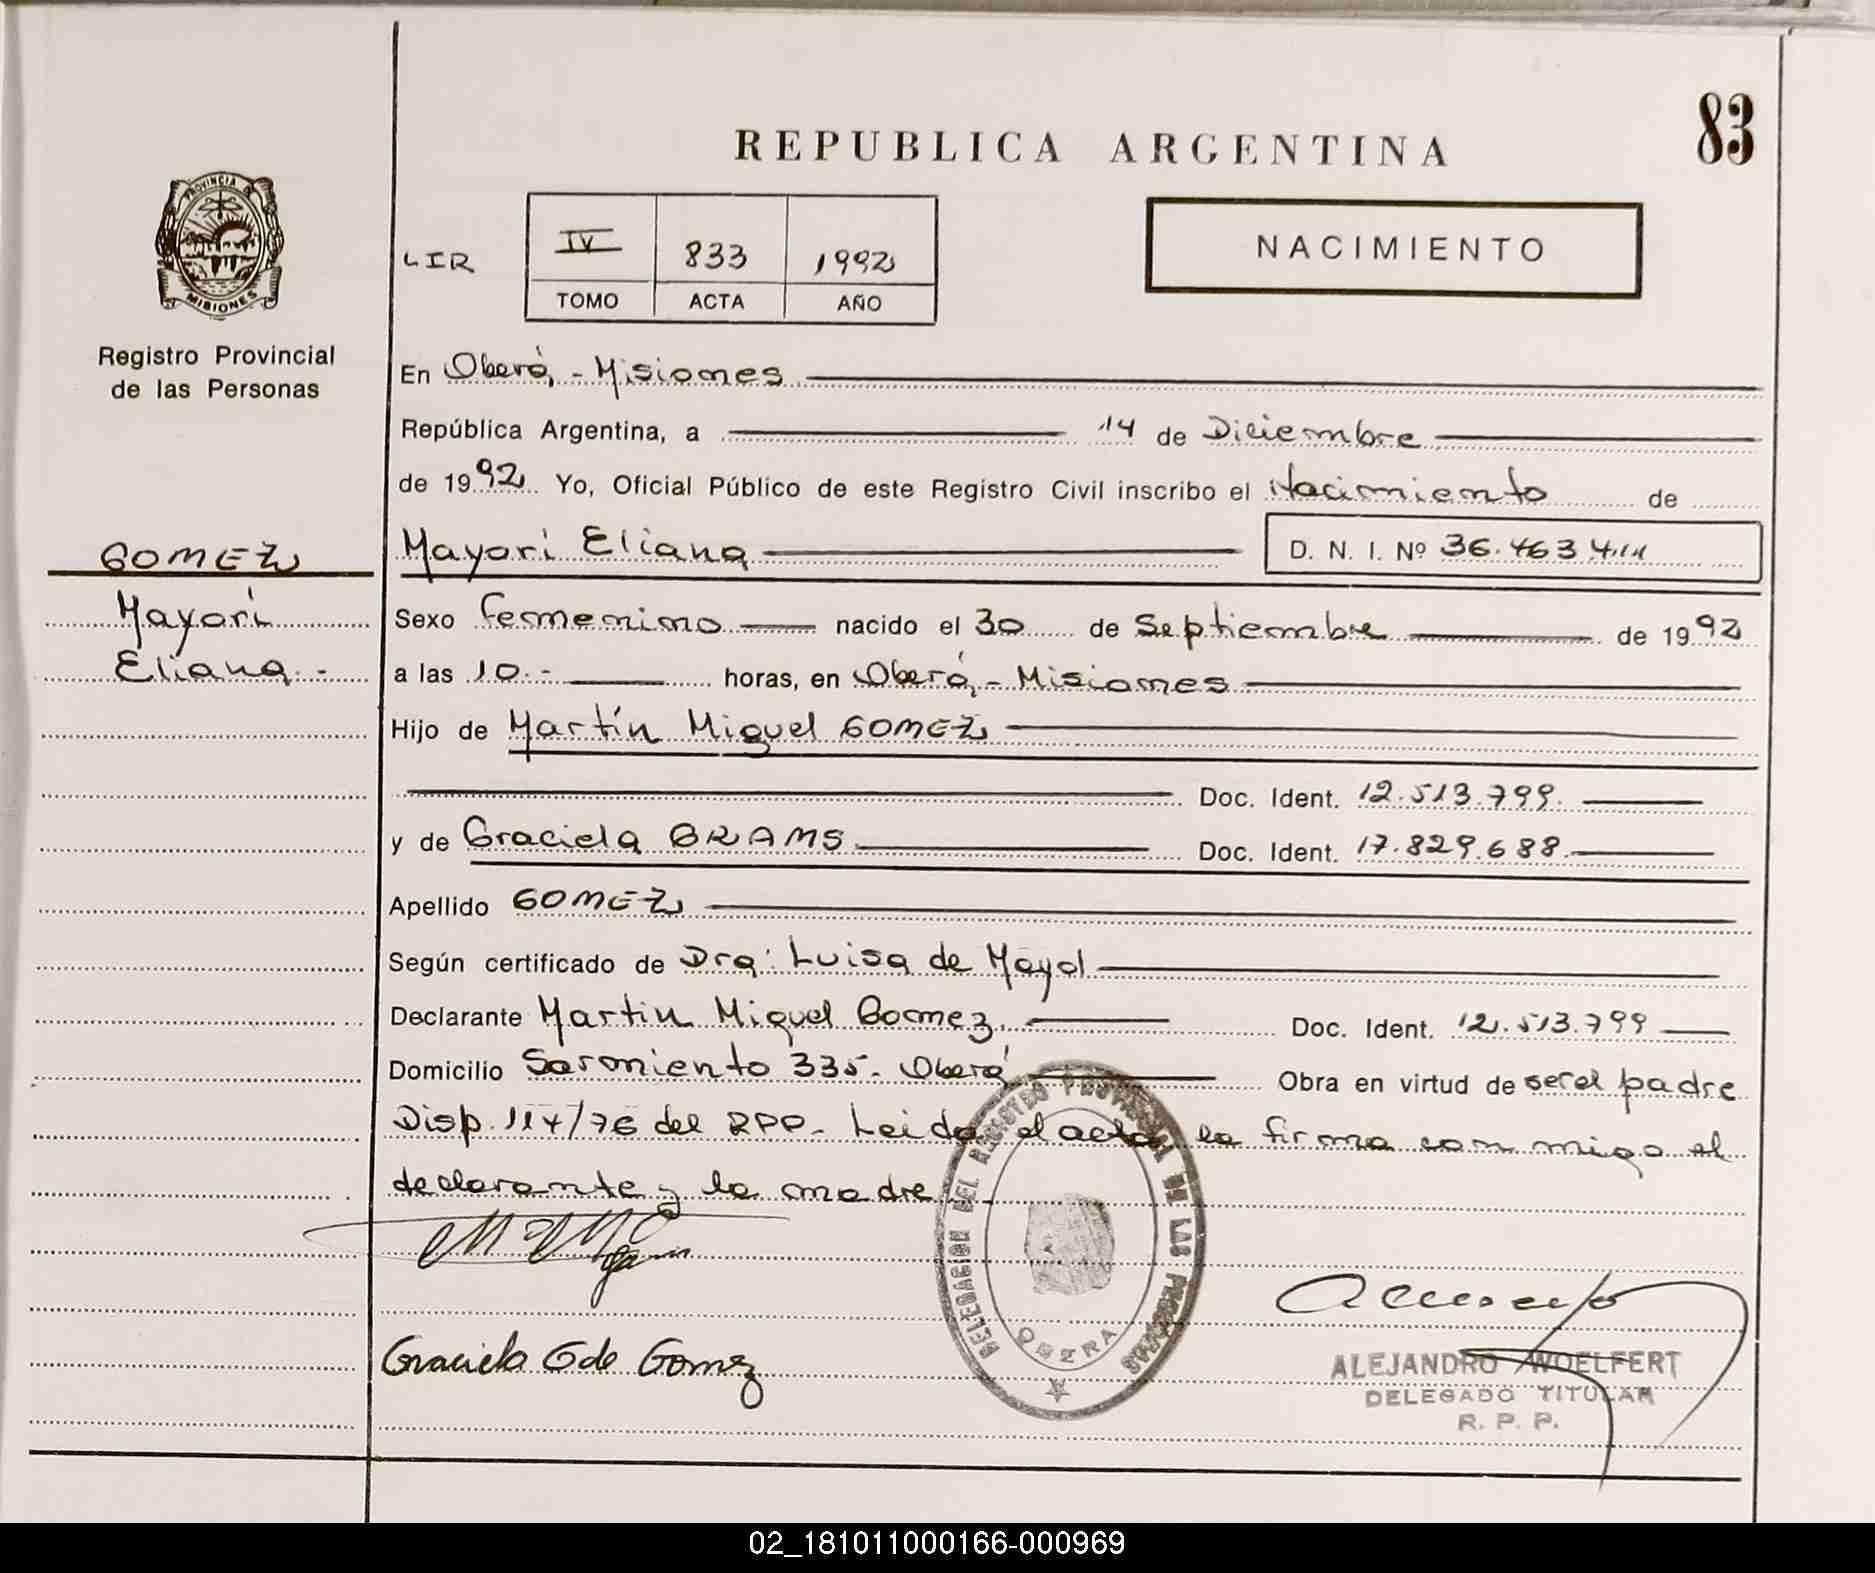 83
REPUBLICA ARGENTINA
PROVINCIA DE
MISIONES
Registro Provincial
de las Personas
LIR
IV 833 1992
TOMO ACTA AÑO
NACIMIENTO
En Oberá, - Misiones
República Argentina, a 14 de Diciembre
de 1992 Yo, Oficial Público de este Registro Civil inscribo el Nacimiento de
GOMEZ
Mayori Eliana D. N. I. Nº 36.463.411
Mayori
Eliana.-
Sexo femenino nacido el 30 de Septiembre de 1992
a las 10.- horas, en Oberá, - Misiones
Hijo de Martín Miguel GOMEZ
Doc. Ident. 12.513.799.
y de Graciela GRAMS Doc. Ident. 17.829.688.
Apellido GOMEZ
Según certificado de Dra: Luisa de Mayol
Declarante Martin Miguel Gomez. Doc. Ident. 12.513.799
Domicilio Sarmiento 335- Oberá Obra en virtud de ser el padre
Disp. 114/76 del RPP- Leida el acta la firma con migo el
declarante y la madre
DELEGACION DEL REGISTRO PROVINCIAL DE LAS PERSONAS
OBERA
Graciela G de Gomez
ALEJANDRO WOELFERT
DELEGADO TITULAR
R. P. P.
02_181011000166-000969